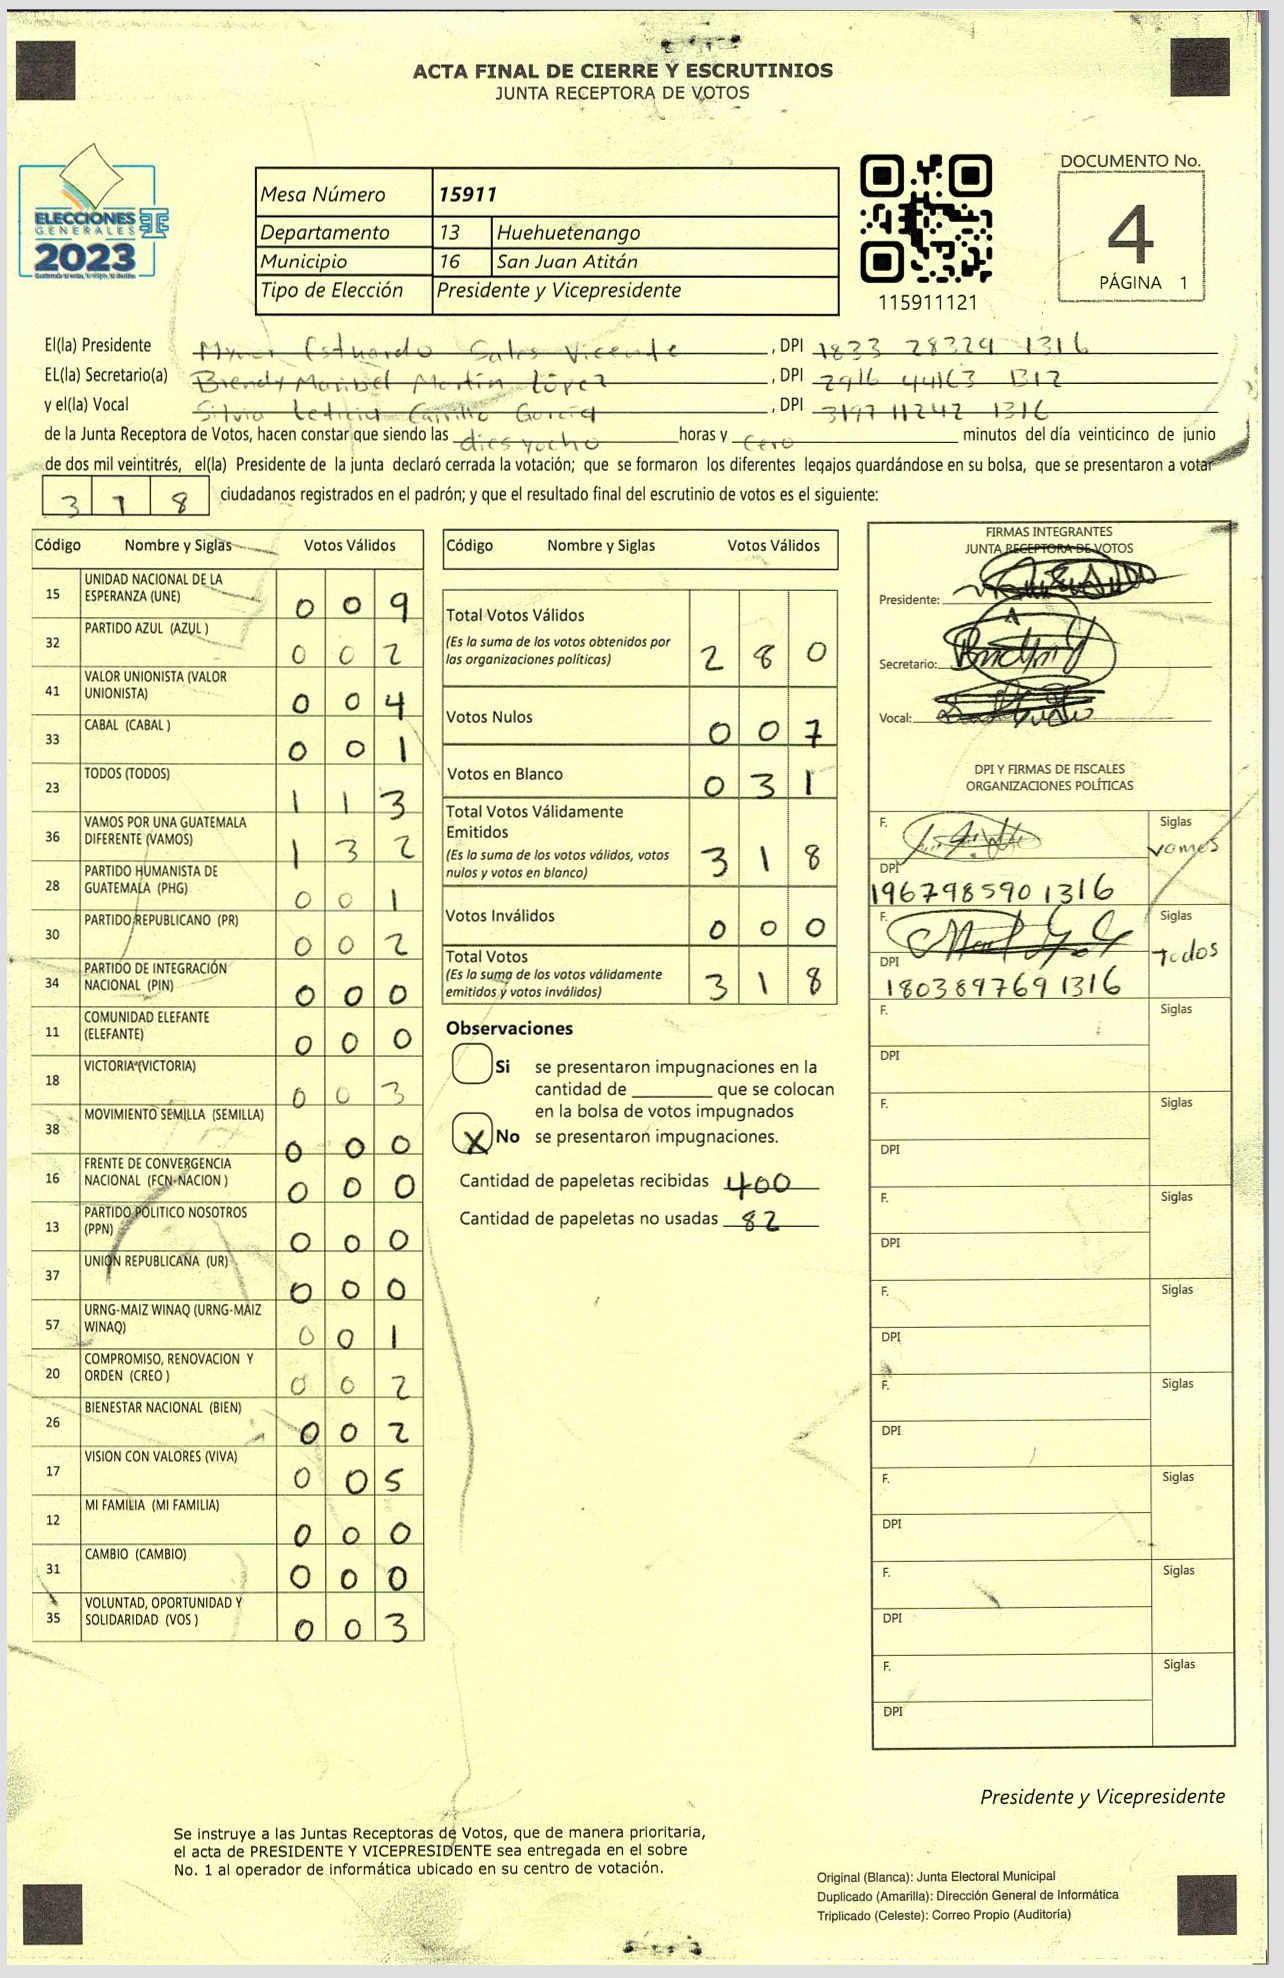 ACTA FINAL DE CIERRE Y ESCRUTINIOS
JUNTA RECEPTORA DE VOTOS
ELECCIONES
GENERALES
2023
Mesa Número 15911
Departamento 13 Huehuetenango
Municipio 16 San Juan Atitán
Tipo de Elección Presidente y Vicepresidente
115911121
DOCUMENTO No.
4
PÁGINA 1
El(la) Presidente Estuardo Sales Vicente, DPI 1833 28329 1316
EL(la) Secretario(a) Brendy Maribel Martín López, DPI 2916 44163 1312
y el(la) Vocal Silvia Leticia Carrillo García, DPI 3197 11242 1316
de la Junta Receptora de Votos, hacen constar que siendo las diesyocho horas y cero minutos del día veinticinco de junio
de dos mil veintitrés, el(la) Presidente de la junta declaró cerrada la votación; que se formaron los diferentes legajos guardándose en su bolsa, que se presentaron a votar
3 1 8 ciudadanos registrados en el padrón; y que el resultado final del escrutinio de votos es el siguiente:
Código Nombre y Siglas Votos Válidos
15 UNIDAD NACIONAL DE LA ESPERANZA (UNE) 0 0 9
32 PARTIDO AZUL (AZUL ) 0 0 2
41 VALOR UNIONISTA (VALOR UNIONISTA) 0 0 4
33 CABAL (CABAL ) 0 0 1
23 TODOS (TODOS) 1 1 3
36 VAMOS POR UNA GUATEMALA DIFERENTE (VAMOS) 1 3 2
28 PARTIDO HUMANISTA DE GUATEMALA (PHG) 0 0 1
30 PARTIDO REPUBLICANO (PR) 0 0 2
34 PARTIDO DE INTEGRACIÓN NACIONAL (PIN) 0 0 0
11 COMUNIDAD ELEFANTE (ELEFANTE) 0 0 0
18 VICTORIA (VICTORIA) 0 0 3
38 MOVIMIENTO SEMILLA (SEMILLA) 0 0 0
16 FRENTE DE CONVERGENCIA NACIONAL (FCN-NACION ) 0 0 0
13 PARTIDO POLITICO NOSOTROS (PPN) 0 0 0
37 UNION REPUBLICANA (UR) 0 0 0
57 URNG-MAIZ WINAQ (URNG-MAIZ WINAQ) 0 0 1
20 COMPROMISO, RENOVACION Y ORDEN (CREO ) 0 0 2
26 BIENESTAR NACIONAL (BIEN) 0 0 2
17 VISION CON VALORES (VIVA) 0 0 5
12 MI FAMILIA (MI FAMILIA) 0 0 0
31 CAMBIO (CAMBIO) 0 0 0
35 VOLUNTAD, OPORTUNIDAD Y SOLIDARIDAD (VOS ) 0 0 3
Código Nombre y Siglas Votos Válidos
Total Votos Válidos
(Es la suma de los votos obtenidos por
las organizaciones políticas) 2 8 0
Votos Nulos 0 0 7
Votos en Blanco 0 3 1
Total Votos Válidamente
Emitidos
(Es la suma de los votos válidos, votos
nulos y votos en blanco) 3 1 8
Votos Inválidos 0 0 0
Total Votos
(Es la suma de los votos válidamente
emitidos y votos inválidos) 3 1 8
Observaciones
Si se presentaron impugnaciones en la
cantidad de ________ que se colocan
en la bolsa de votos impugnados
X No se presentaron impugnaciones.
Cantidad de papeletas recibidas 400
Cantidad de papeletas no usadas 82
FIRMAS INTEGRANTES
JUNTA RECEPTORA DE VOTOS
Presidente:
Secretario:
Vocal:
DPI Y FIRMAS DE FISCALES
ORGANIZACIONES POLÍTICAS
F. Siglas
vamos
DPI
196798590 1316
F. Siglas
Todos
DPI
180389769 1316
F. Siglas
DPI
F. Siglas
DPI
F. Siglas
DPI
F. Siglas
DPI
F. Siglas
DPI
F. Siglas
DPI
F. Siglas
DPI
F. Siglas
DPI
Presidente y Vicepresidente
Se instruye a las Juntas Receptoras de Votos, que de manera prioritaria,
el acta de PRESIDENTE Y VICEPRESIDENTE sea entregada en el sobre
No. 1 al operador de informática ubicado en su centro de votación.
Original (Blanca): Junta Electoral Municipal
Duplicado (Amarilla): Dirección General de Informática
Triplicado (Celeste): Correo Propio (Auditoría)